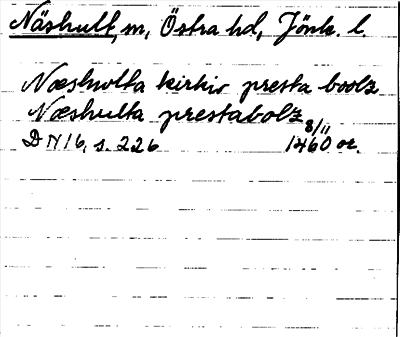 Näshult, sn, Östra hd, Jönk. l.
Næshulta kirkio presta boolz
Næshulta prestabolz
DN 16, s. 226 8/11 1460 or.